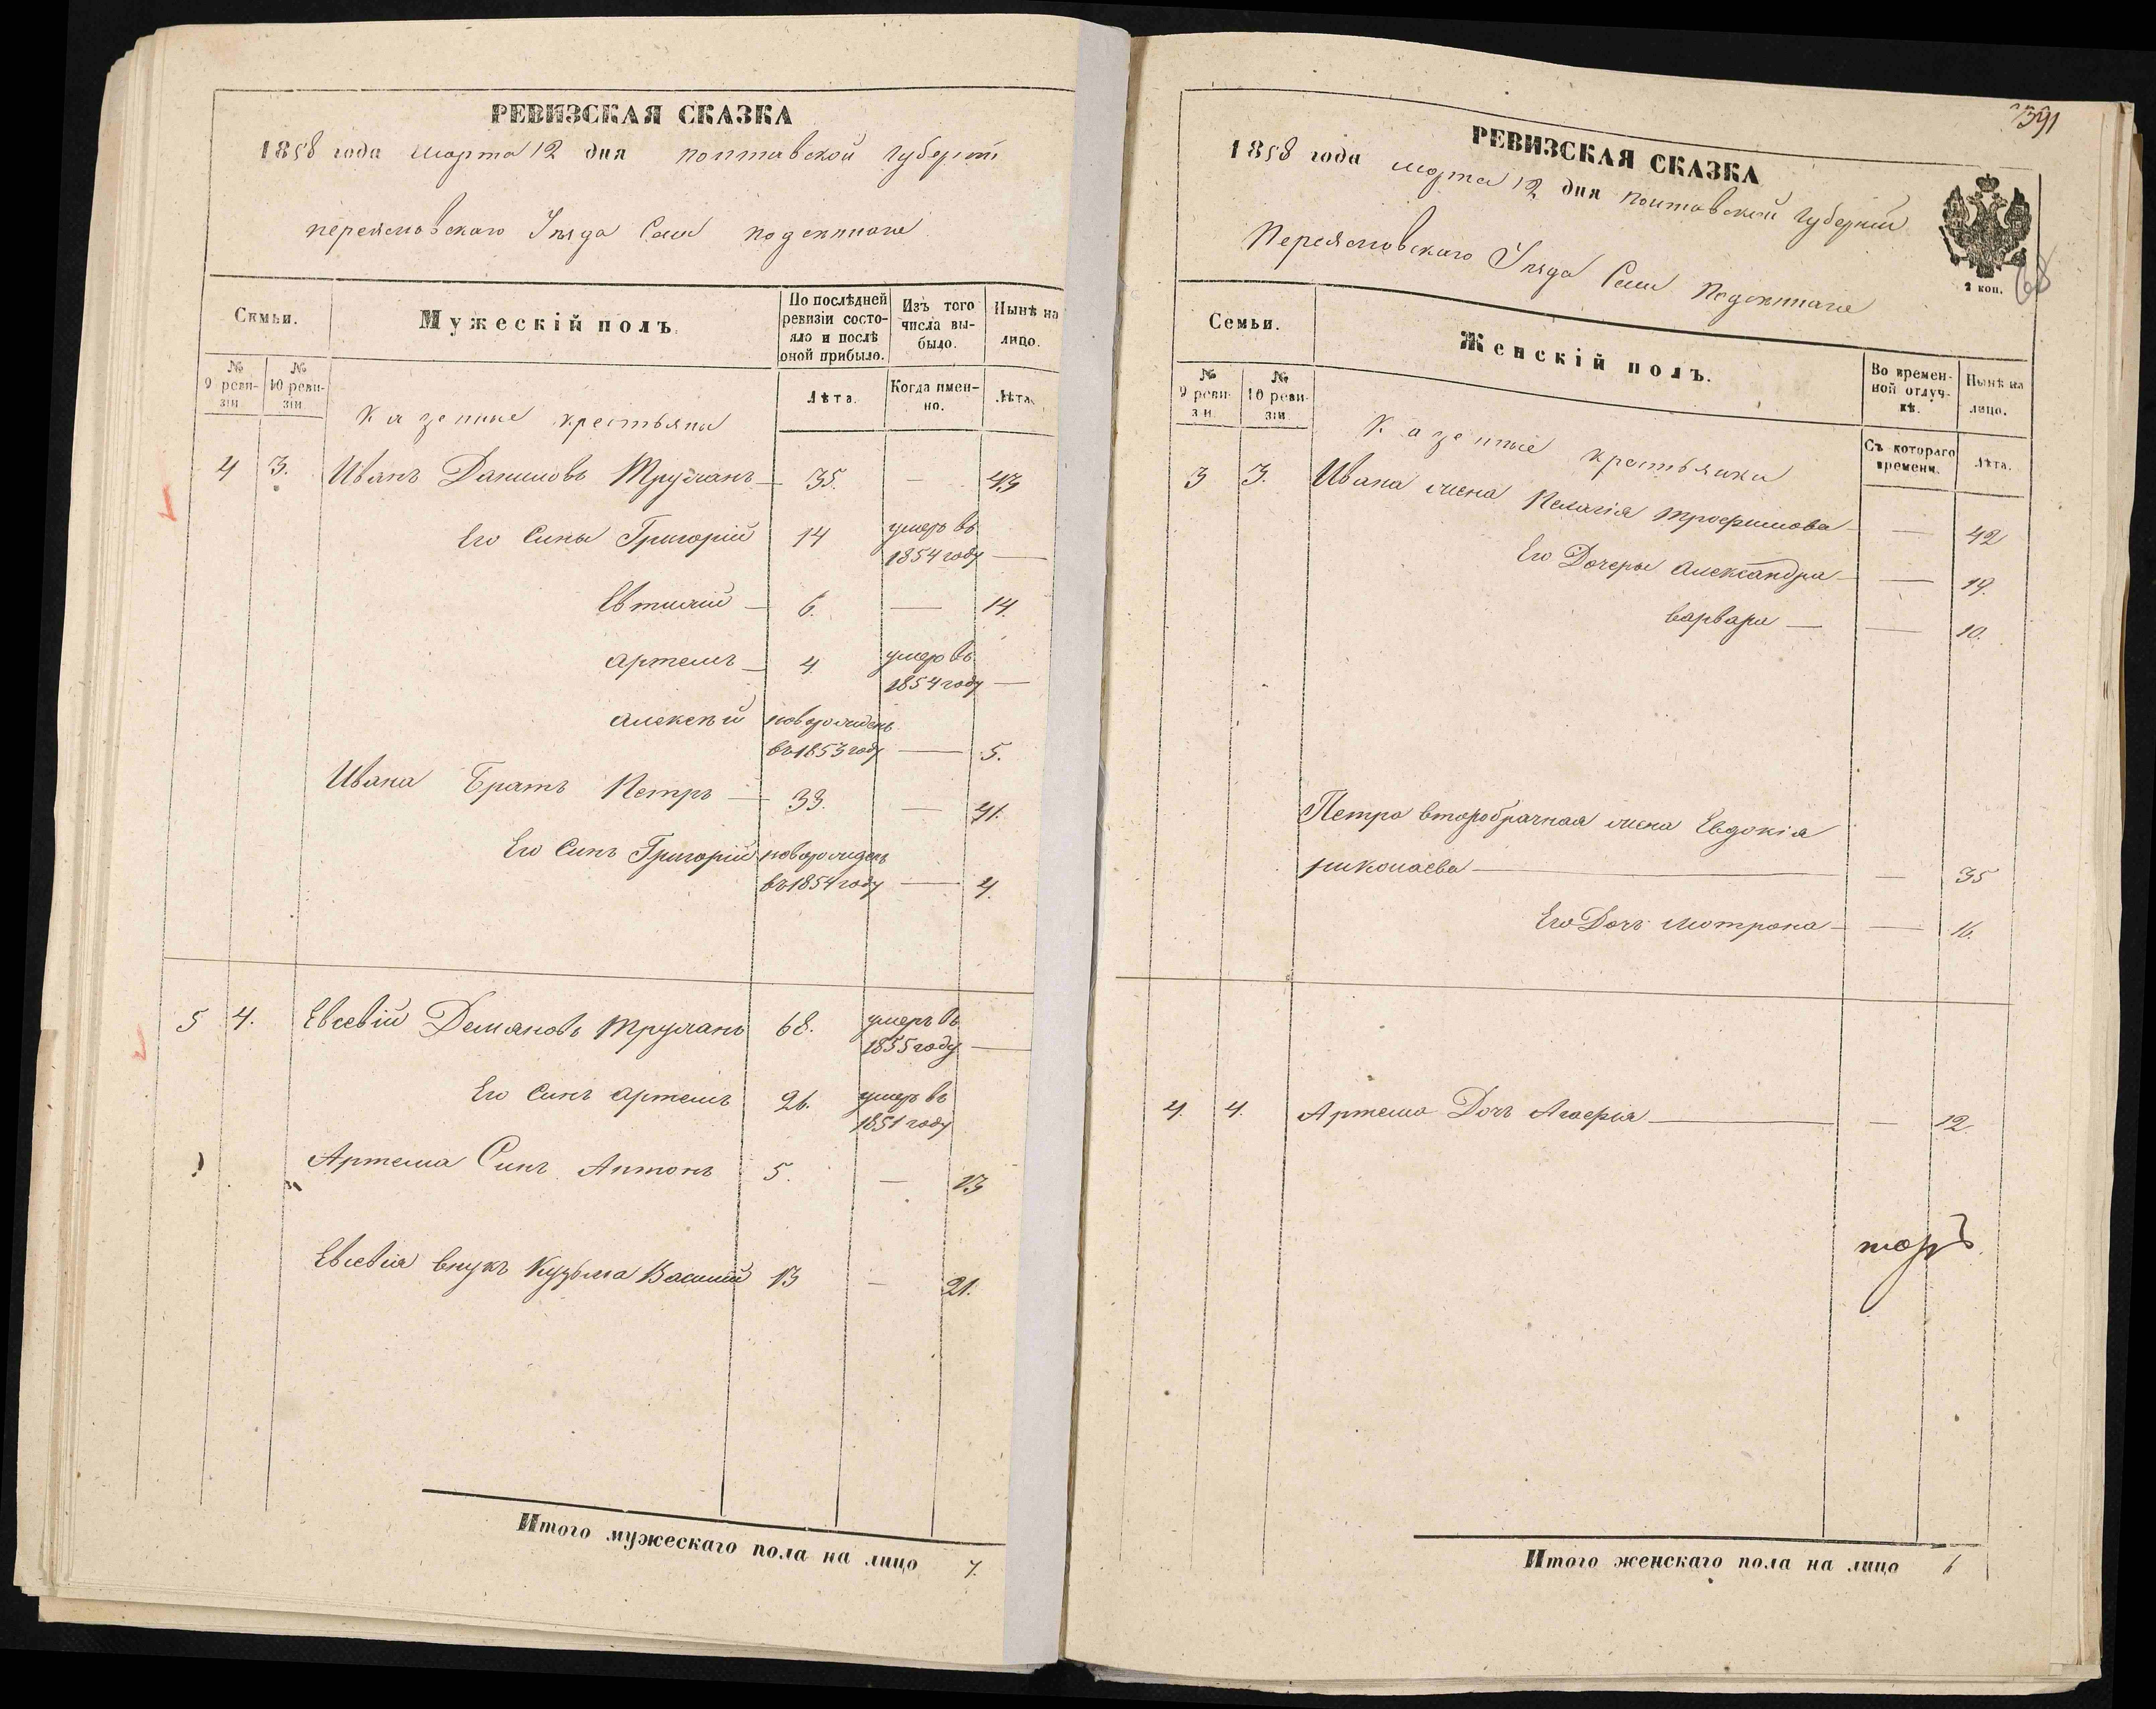 РЕВИЗСКАЯ СКАЗКА
1858 года марта 12 дня полтавской губерніи
переясловскаго Уѣзда Села подсеннаго
Семьи.
Мужескій полъ.
По послѣдней ревизіи состояло и послѣ оной прибыло.
Изъ того числа выбыло.
Нынѣ на лицо.
№ 9 ревизіи
№ 10 ревизіи
Лѣта.
Когда именно.
Лѣта.
Казенные крестьяны
4 3. Иванъ Даниловъ Труханъ 35. — 43
Его Сины Григорій 14 умеръ въ
1854 году —
Евтихій — 6. — 14.
артемъ — 4. умеръ въ
1854 году —
алексѣй новорожденъ
въ 1853 году — 5.
Ивана Братъ Петръ — 33. — 41.
Его Синъ Григорій новорожденъ
въ 1854 году — 4.
5 4. Евсевій Демяновъ труханъ 68. умеръ въ
1855 году —
Его Синъ артемъ 26. умеръ въ
1851 году
Артема Синъ Антонъ 5. — 13
Евсевія внукъ Кузьма Василій 13 — 21.
Итого мужескаго пола на лицо 7.
391
РЕВИЗСКАЯ СКАЗКА
1858 года марта 12 дня полтавской губерніи
Переясловскаго Уѣзда Села Подсеннаго
2 коп.
68
Семьи.
Женскій полъ.
Во временной отлучкѣ.
Нынѣ на лицо.
№ 9 ревизіи
№ 10 ревизіи
Съ котораго времени.
Лѣта.
Казенные крестьянки
3 3. Ивана жена Пелагія трофимова — — 42
Его Дочеры александра — — 19.
варвара — — 10.
Петра второбрачная жена Евдокія
николаева — — 35
Его Дочь мотрона — — 16.
4. 4. Артема Дочь Агафія — — 12.
Итого женскаго пола на лицо 6